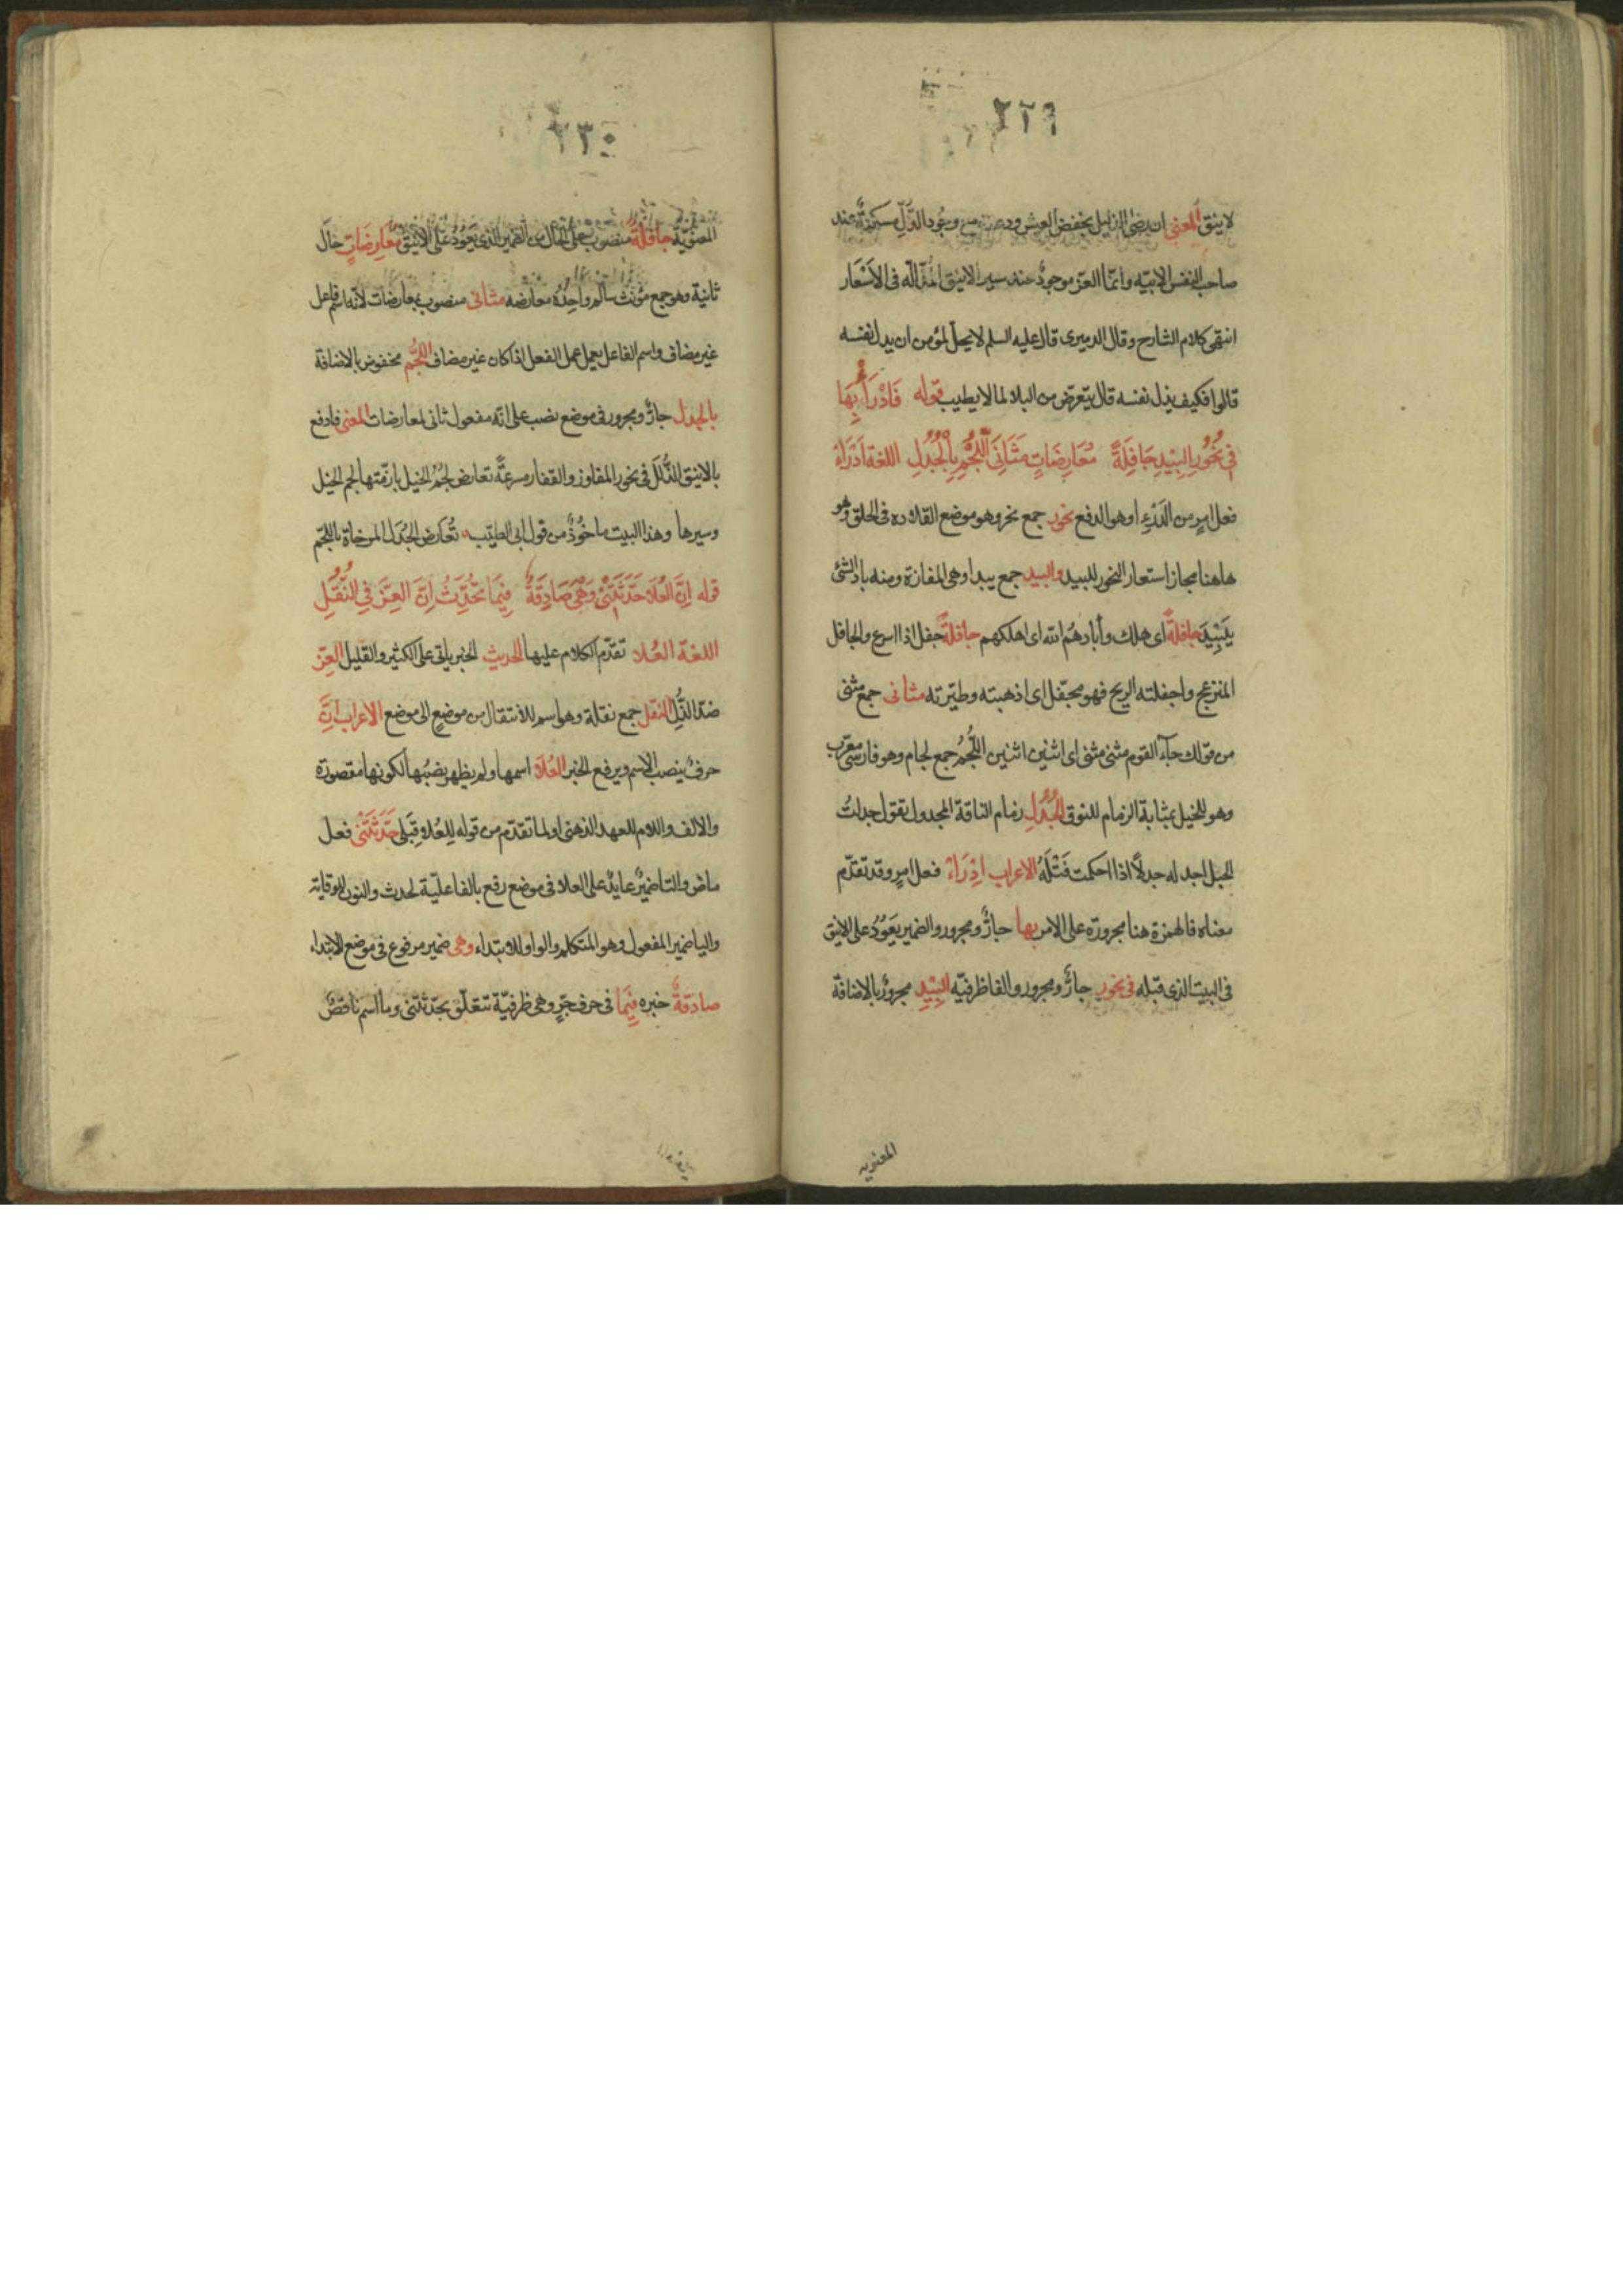 ٢٢٩
لاينق المعنى ان رضى الذليل بخفض العيش ودعته مع وجود الذّلِّ مسكنةٌ عند
صاحب النفس الابيّه وانمّا العزّ موجودٌ عند سير الاينق المذلّله فى الاَسْفار
انتهى كلام الشارح وقال الدميرى قال عليه السلم لايحلّ لمؤمن ان يذل نفسه
قالوا فكيف يذل نفسه قال يتعرّض من البلاء لما لا يطيب قوله فَادْرَأْ بِهَا
فِي نُحُوْرِ البِيْدِ جَافِلَةً مُعَارِضَاتٍ مَثَانِىَ اللُّجْمِ بِالْجُدُلِ اللغة اَدْرَاءْ
فعل امرٍ من الدَرْءِ اوهو الدفع نحور جمع نحر وهو موضع القلاده فى الحلق وهو
هاهنا مجاز استعار النحور للبيد والبيد جمع بيدا وهى المفازة ومنه باد الشئ
يَبِيْدُ جافلةً اى هلك وأبادهُم الله اى اهلكهم جافلةً جفل اذا اسرع والجافل
المنزعج واجفلته الريح فهو مجفّل اى اذهبته وطيّرته مثانى جمع مثنى
من قولك جآء القوم مثنى مثنى اى اثنين اثنين اللُّجُمُ جمع لجام وهو فارسى معرّب
وهو للخيل بمثابة الزمام للنوق الجُدُلِ زمام الناقة المجدول تقول جدلتُ
الحبل اجدله جدلاً اذا احكمت فَتْلَهُ الاعراب اِدْرَاءْ فعل امرٍ وقد تقدّم
معناه فالهمزة هنا مجرورة على الامر بها جارٌّ ومجرور والضمير يَعَوُدُ على الاينق
فى البيت الذى قبله فى نحور جارٌّ ومجرور والفا ظرفيّه البِيْدِ مجرورٌ بالاضافة
المعنويه
٢٣٠
المعنويّة جافلةً منصوب على الحال من الضمير الذى يَعُوْدُ على الاينق مُعَارِضَاتٍ حال
ثانية وهو جمع مؤنث سالم واحِدُهُ معارضه مثانى منصوب بمعارضات لانّه اسم فاعل
غير مضاف واسم الفاعل يعمل عمل الفعل اذا كان غير مضاف اللُّجُم مخفوض بالاضافة
بالجدل جارٌّ ومجرور فى موضع نصب على انّه مفعول ثانى لمعارضات المعنى فادفع
بالاينق الذُّلَل فى نحور المفاوز والقفار مسرعةً تعارض لُجُم الخيل بازمّتها لجم الخيل
وسيرها وهذا البيت ماخُوُذٌ من قول ابى الطيّب تُعَارضُ الجُدل المرخاة باللجم
قوله اِنَّ العُلَا حَدَّثَتْنِىْ وَهْىَ صَادِقَةٌ فِيْمَا تُحَدِّثُ اِنَّ العِزَّ فِي النُّقَلِ
اللغة العُلا تقدّم الكلام عليها الحديث الخبر ياتى على الكثير والقليل العِزّ
ضدّ الذُّلّ النقل جمع نقلة وهو اسم للانتقال من موضعٍ الى موضع الاعراب اِنَّ
حرفٌ ينصب الاسم ويرفع الخبر العُلَا اسمها ولم يظهر نصبُها لكونها مقصورة
والالف واللام للعهد الذهنى او لما تقدّم من قوله للِعُلَا قِبَلى حَدَّثَتْنى فعل
ماض والتا ضميرٌ عايدٌ على العلا فى موضع رفع بالفاعليّة لحدث والنون للوقاية
واليا ضمير المفعول وهو المتكلم والواو للابتداء وهى ضمير مرفوع فى موضع الابتداء
صادقةٌ خبره فِيْمَا فى حرف جرٍّ وهى ظرفيّة تتعلّق بحدّثتنى وما اسم ناقصٌ